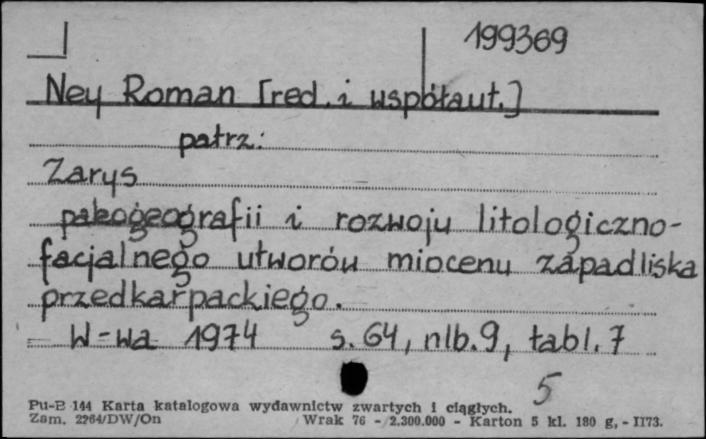 199369
Ney Roman [red. i współaut.]
patrz:
Zarys
paleogeografii i rozwoju litologiczno-
facjalnego utworów miocenu zapadliska
przedkarpackiego.
W-wa 1974 s. 64, nlb. 9, tabl. 7
5
Pu-B 144 Karta katalogowa wydawnictw zwartych i ciągłych.
Zam. 2264/DW/On Wrak 76 - 2.300.000 - Karton 5 kl. 180 g, - II73.